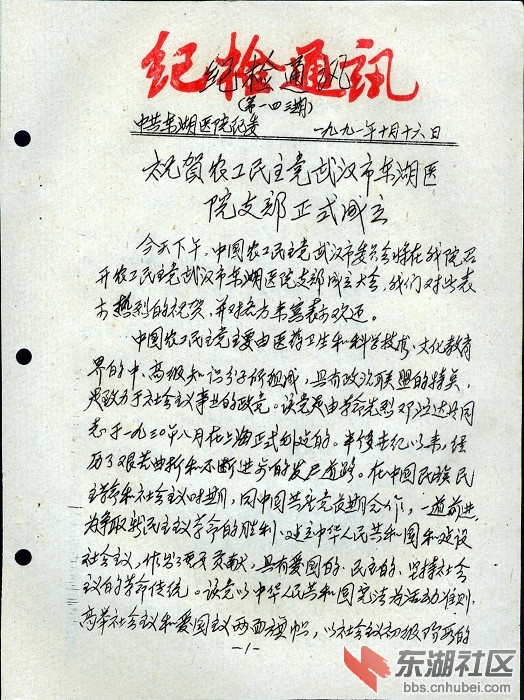 纪检通讯
纪检通讯
(第一四三期)
中共东湖医院纪委 一九九一年十月十六日
祝贺农工民主党武汉市东湖医
院支部正式成立
今天下午,中国农工民主党武汉市委员会将在我院召
开农工民主党武汉市东湖医院支部成立大会,我们对此表
示热烈的祝贺,并对各方来宾表示欢迎。
中国农工民主党主要由医药卫生和科学技术、文化教育
界的中、高级知识分子所组成,具有政治联盟的特点,
是致力于社会主义事业的政党。该党是由革命先烈邓演达同
志于一九三0年八月在上海正式创建的。半个多世纪以来,经
历了艰苦曲折和不断进步的发展道路。在中国民族民
主革命和社会主义时期,同中国共产党长期合作,一道前进,
为争取新民主主义革命的胜利、建立中华人民共和国和建设
社会主义,作出了重要贡献,具有爱国的、民主的、坚持社会
主义的革命传统。该党以中华人民共和国宪法为活动准则,
高举社会主义和爱国主义两面旗帜,以社会主义初级阶段的
-1-
东湖社区
bbs.cnhubei.com